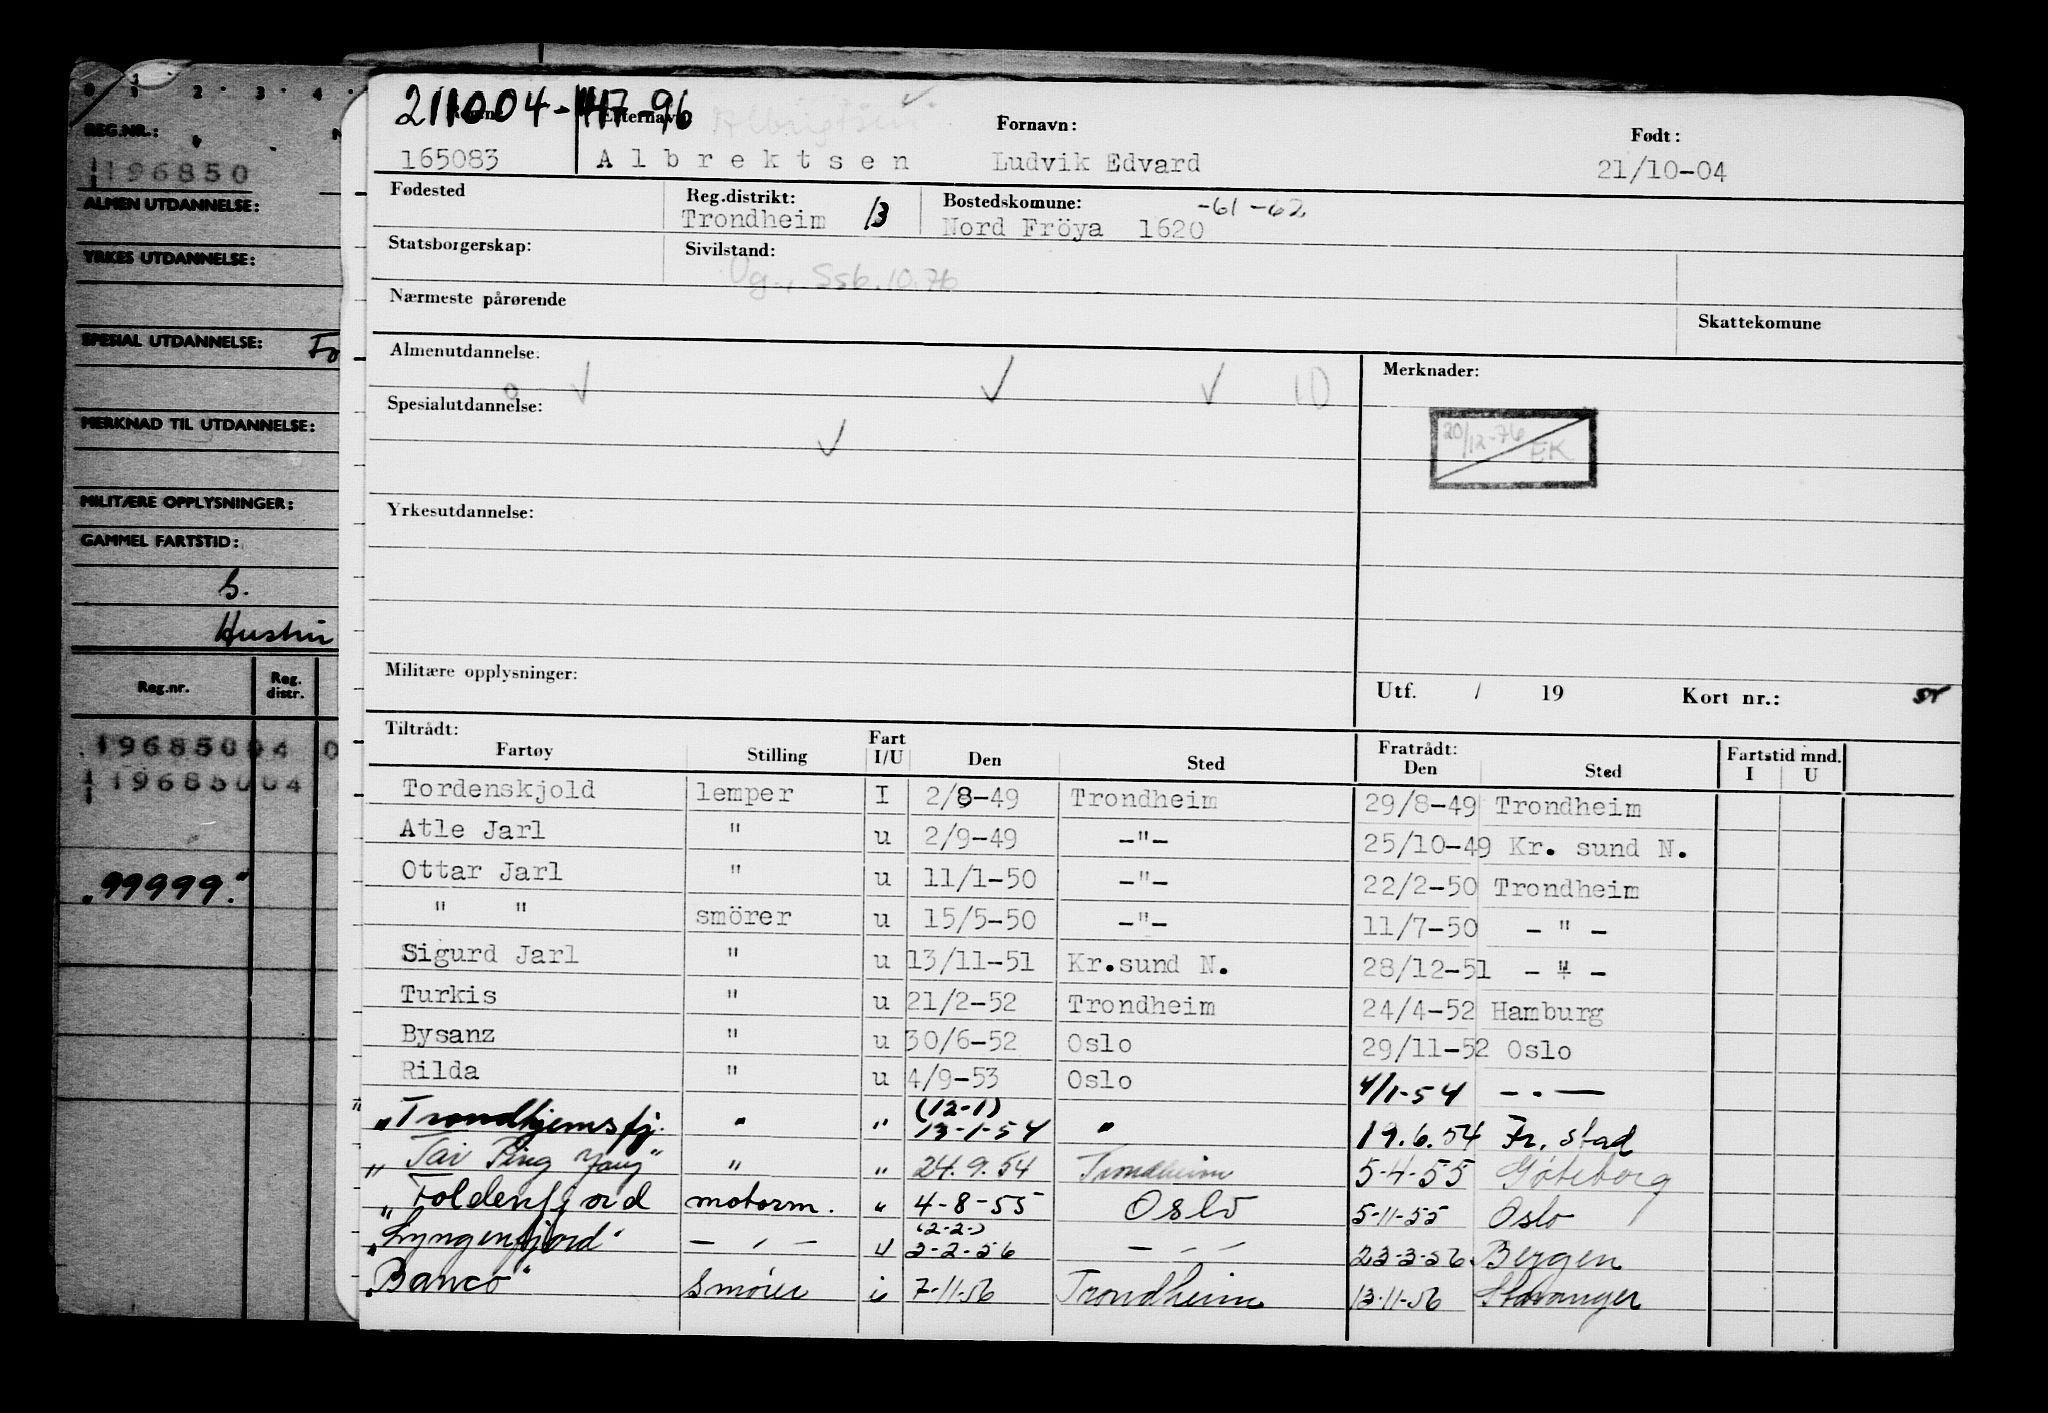 0 1 2 · 3 · 4 ·
REG.NR.:
196850
ALMEN UTDANNELSE:
YRKES UTDANNELSE:
SPESIAL UTDANNELSE:
MERKNAD TIL UTDANNELSE:
MILITÆRE OPPLYSNINGER:
GAMMEL FARTSTID:
Reg.nr. Reg. distr.
19685004 0
19685004
"99999."
Etternavn Albrigtsen Fornavn: Født:
165083 Albrektsen Ludvik Edvard 21/10-04
Fødested Reg.distrikt: Bostedskomune: -61 -62
Trondheim 13 Nord Fröya 1620
Statsborgerskap: Sivilstand:
Ug., Ssb. 10.76
Nærmeste pårørende Skattekomune
Almenutdannelse: Merknader:
0 ✓ ✓ ✓ 10
Spesialutdannelse: 20/12-76 EK
✓
Yrkesutdannelse:
Militære opplysninger:
Utf. / 19 Kort nr.:
Tiltrådt: Fart Fratrådt: Fartstid mnd.
Fartøy Stilling I/U Den Sted Den Sted I U
Tordenskjold lemper I 2/8-49 Trondheim 29/8-49 Trondheim
Atle Jarl " u 2/9-49 -"- 25/10-49 Kr. sund N.
Ottar Jarl " u 11/1-50 -"- 22/2-50 Trondheim
" " smörer u 15/5-50 -"- 11/7-50 - " -
Sigurd Jarl " u 13/11-51 Kr.sund N. 28/12-51 - " -
Turkis " u 21/2-52 Trondheim 24/4-52 Hamburg
Bysanz " u 30/6-52 Oslo 29/11-52 Oslo
Rilda " u 4/9-53 Oslo 4/1-54 - " -
(12-1)
"Trondhjemsfj. " " 13-1-54 " 19.6.54 Fr. stad
"Tai Ping Yang" " " 24.9.54 Trondheim 5-4-55 Göteborg
"Foldenfjord motorm. " 4-8-55 Oslo 5-11-55 Oslo
(2-2-)
"Lyngenfjord" - " - u 3-2-56 - " - 23-3-56 Bergen
"Banco" Smörer i 7-11-56 Trondheim 13-11-56 Stavanger